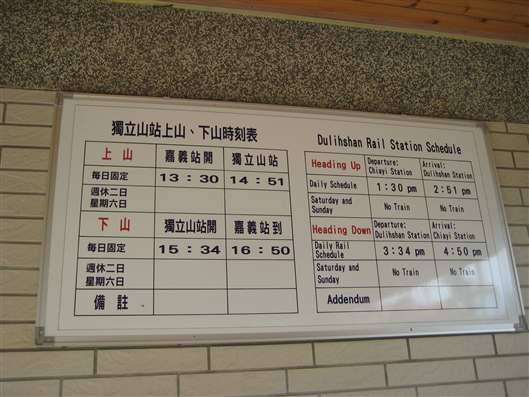 獨立山站上山、下山時刻表
上山 嘉義站開 獨立山站
每日固定 13：30 14：51
週休二日
星期六日
下山 獨立山站開 嘉義站到
每日固定 15：34 16：50
週休二日
星期六日
備註
Dulihshan Rail Station Schedule
Heading Up Departure: Chiayi Station Arrival: Dulihshan Station
Daily Schedule 1:30 pm 2:51 pm
Saturday and Sunday No Train No Train
Heading Down Departure: Dulihshan Station Arrival: Chiayi Station
Daily Rail Schedule 3:34 pm 4:50 pm
Saturday and Sunday No Train No Train
Addendum